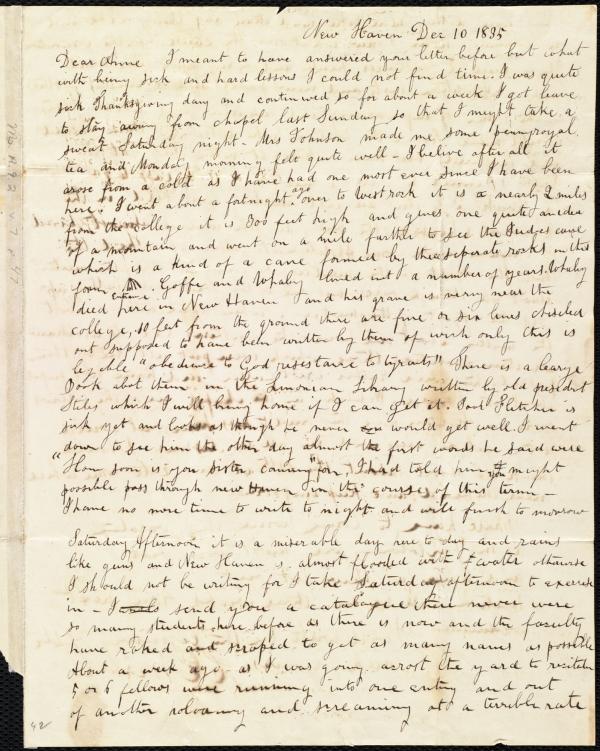 New Haven Dec 10 1835
Dear Anne I meant to have answered your letter before but what
with being sick and hard lessons I could not find time. I was quite
sick Thanksgiving day and continued so for about a week I got leave
to stay away from chapel last Sunday so that I might take a
sweat Saturday night - Mrs Johnson made me some pennyroyal
tea and Monday morning felt quite well - I belive after all it
arose from a cold as I have had one most ever since I have been
here. I went about a fortnight ago over to West rock it is a nearly 2 miles
from the college it is 300 feet high and gives one quite an idea
of a mountain and went on a mile further to see the Judges cave
which is a kind of a cave formed by three seperate rocks in this
form entrance. Goffe and Whaley lived in it a number of years. Whaley
died here in New Haven and his grave is verry near the
college, 10 feet from the ground there are five or six lines chiseled
out supposed to have been written by them of wich only this is
legible "obedience to God resistance to tyrants" There is a large
Book abot them in the Linonian Library written by old president
Stiles which I will bring home if I can get it. Poor Fletcher is
sick yet and looks as though he never would get well. I went
down to see him the other day almost the first words he said were
"How soon is you sister coming" for I had told him you might
possible pass through new Haven in the course of this term -
I have no more time to write to night and will finish to morrow
Saturday Afternoon it is a miserable day here to day and rains
like guns and New Haven is almost flooded with water otherwise
I should not be writing for I take Saturday afternoon to exercise
in - I send you a catalogue there never were
so many students here before as there is now and the faculty
have raked and scraped to get as many names as possible
About a week ago as I was going acrost the yard to recitation
5 or 6 fellows were running into one entry and out
of another and screaming at a terrible rate
42